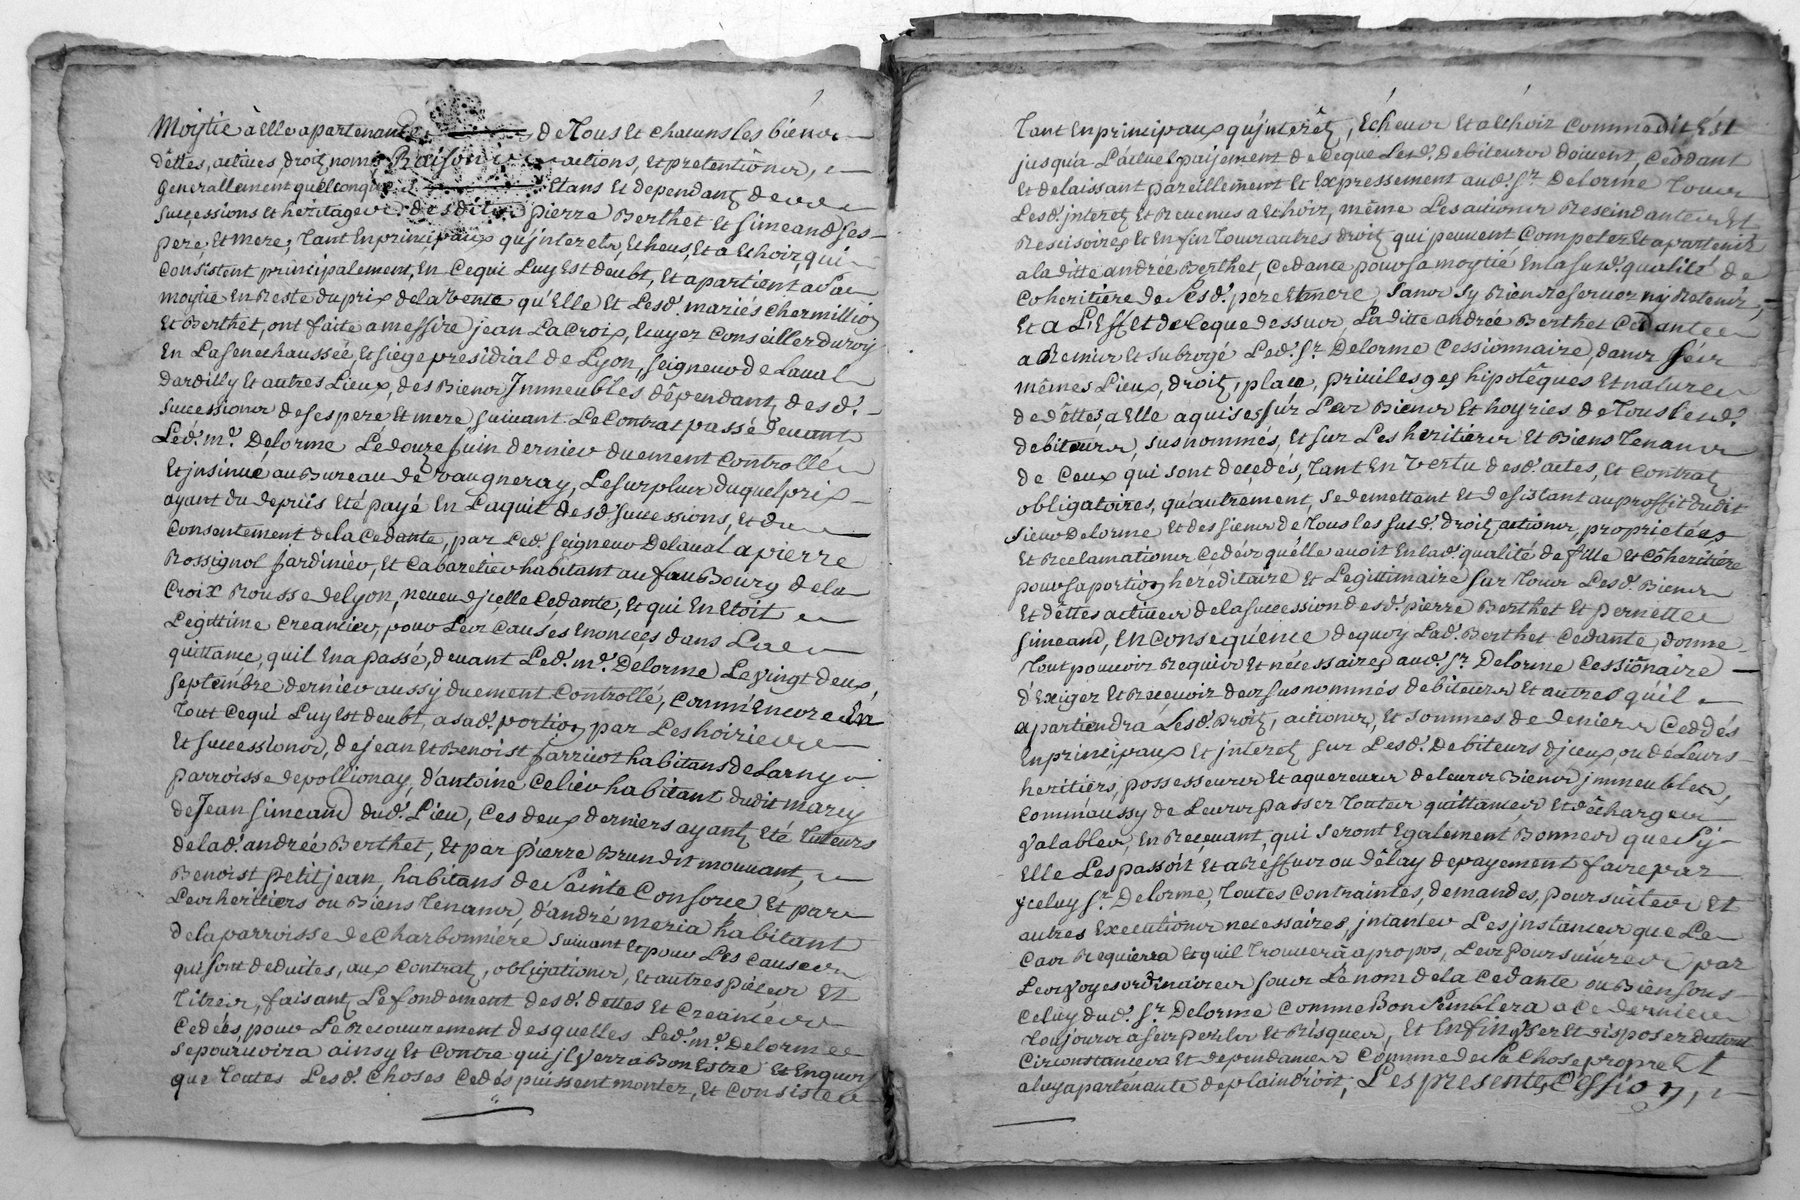 Moytie à Elle apartenante de Tous Et chacuns les biens
dêttes, actives, droitz, noms, Raisons actions, Et pretentions,
generallement quélconques Etans Et dependantz des
successions Et héritages desdits pierre Berthet Et Simeand ses
pere, Et mere, Tant En principaux qu'interets, Echeus, Et a Echoir, qui
Consistent principalement, En Cequi Luy Est deubt, Et apartient a Sa
moytie En Reste du prix dela Vente qu'Elle Et Lesd. mariés Chermillion
Et Berthet, ont faite a messire jean La Croix, Ecuyer Conseiller du roy
En La Senechaussée, Et siege presidial de Lyon, Seigneur de Laval
dardilly Et autres Lieux, des Biens Immeubles dépendantz desd.
Successions deses pere Et mere, suivant Le Contrat passé devant
Led. m.e Delorme Lé douze Juin dernier duement Controllé
Et insinué au Bureau de Vaugneray, Le surplus duquel prix
ayant du depuis Eté payé En Laquit desd. successions, Et du
Consentement dela Cedante, par Led. Seigneur Delaval a pierre
Rossignol Jardinier, Et Cabaretier habitant au faux Bourg dela
Croix Rousse de Lyon, neveu d'jcelle Cedante, Et qui En Etoit
Legittime Creancier, pour Les Causes Enoncées dans La
quittance, quil En a passé, devant Led. m.e Delorme Le vingt deux
Septembre dernier aussy duement Controllé, comm'Encore En
Tout Cequi Luy Est deubt, a sad. portion, par Les hoiries
Et successions, de jean Et Benoist farricot habitans de Larny
parroisse de pollionay, d'antoine Celier habitant dudit marcy
de Jean Simeand dud. Lieu, Ces deux derniers ayantz Eté Tuteurs
delad. andrée Berthet, Et par pierre Brun dit mouvant,
Benoist petit jean, habitans de Sainte Consorce Et par
Les heritiers ou Biens Tenans, d'andré meria habitant
dela parroisse de Charbonniere suivant Et pour Les Causes
qui sont deduites, aux Contratz, obligations, Et autres piéces Et
Titres, faisantz Le fondement desd. dettes Et Creances
Cedées, pour Le Recouvrement desquelles Led. m.e Delorme
se pourvoira ainsy Et Contre qui jl verra Bon Estre Et En quoy
que Toutes Lesd. Choses Cedés puissent monter, Et Consister
Tant En principaux qu'interêtz, Echeus Et a Echoir Comme dit Est
jusqu'a L'actuel paijement de Ceque Lesd. Debiteurs doivent, Ceddant
Et delaissant pareillement Et Expressement aud. Sr. Delorme Tous
Lesd. jnteretz Et Revenus a Echoir, même Les actions Rescindantes Et
Rescisoires Et Enfin Tous autres droitz qui peuvent Competer Et apartenir
a la ditte andrée Berthet, Cedante pour sa moytie En la susd. qualité de
Coheritiere de Sesd. pere Et mere, Sans sy Rien Reserver ny Retenir,
Et a L'Effet de Ceque dessus, La ditte andrée Berthet Cedante
a Remis Et subrogé Led. Sr. Delorme Cessionnaire, dans Ses
mêmes Lieux, droitz, place, privileges hipotêques Et nature
de dêttes, a Elle aquises sur Les Biens Et hoyries de Tous Lesd.
debiteurs, susnommés, Et sur Les heritiers Et Biens Tenans
de Ceux qui sont decedés, Tant En Vertu desd. actes, Et Contratz
obligatoires, qu'autrement, se demettant Et desistant au proffit dudit
sieur Delorme Et des siens de Tous les susd. droitz, actions, proprietées
Et Reclamations Cedées qu'elle avoit En lad. qualité de fille Et Cohéritière
pour sa portion hereditaire Et Legittimaire sur Tous Lesd. Biens
Et dêttes actives de la succession desd. pierre Berthet Et pernette
Simeand, En Consequence dequoy Lad. Berthet Cedante donne
Tout pouvoir Requis Et nécessaires aud. Sr. Delorme Cessionaire
d'Exiger Et Recevoir des susnommés debiteurs Et autres qu'il
apartiendra Lesd. Droitz, actions, Et sommes de deniers Ceddés
En principaux Et jnteretz sur Lesd. Debiteurs d'jceux, ou dé Leurs
heritiers, possesseurs Et aquereurs deleurs Biens jmmeubles,
Comm'aussy de Leurs passer Toutes quittances Et décharges
Valables, En Recevant, qui seront Egalement Bonnes que Sy
Elle Les passoit Et a Reffus ou délay depayement faire par
jceluy Sr. Delorme, Toutes Contraintes, demandes, poursuites Et
autres Executions necessaires, jntanter Les jnstances que Le
Cas Requierra Et quil Trouvera a propos, Les poursuivre par
Les voyes ordinaires sous Le nom dela Cedante ou Bien sous
Celuy dud. Sr. Delorme Comme Bon Semblera a Ce dernier
Toujours a ses perils Et Risques, Et Enfin User Et disposer dutout
Circonstances Et dependances Comme de Sa Chose propre Et
a luy apartenante deplain droit, Les presente, Cession,